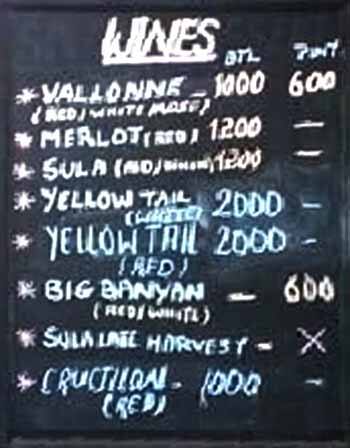 WINES
BTL PINT
* VALLONNE - 1000 600
(RED/WHITE/ROSE)
* MERLOT (RED) 1200 -
* SULA (RED/ 1200 -
* YELLOW TAIL 2000 -
(WHITE)
* YELLOW TAIL 2000 -
(RED)
* BIG BANYAN - 600
(RED/WHITE)
* SULA LATE HARVEST - X
* - 1000 -
(RED)